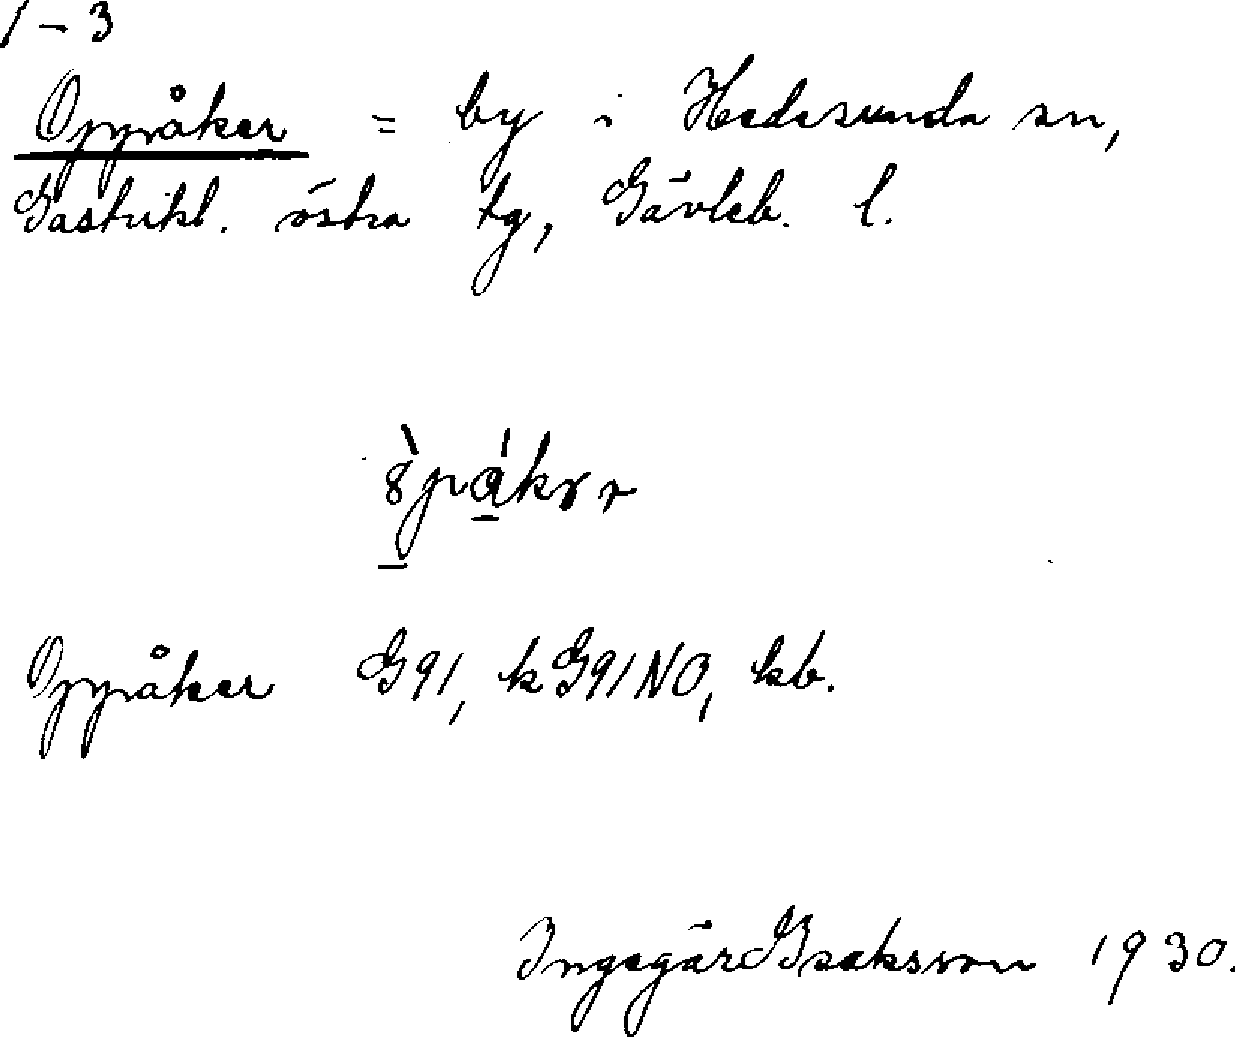 1-3
Oppåker = by i Hedesunda sn,
Gästrikl. östra tg, Gävleb. l.
Oppåker G91, kG91NO, kb.
Ingegärd Isaksson 1930.